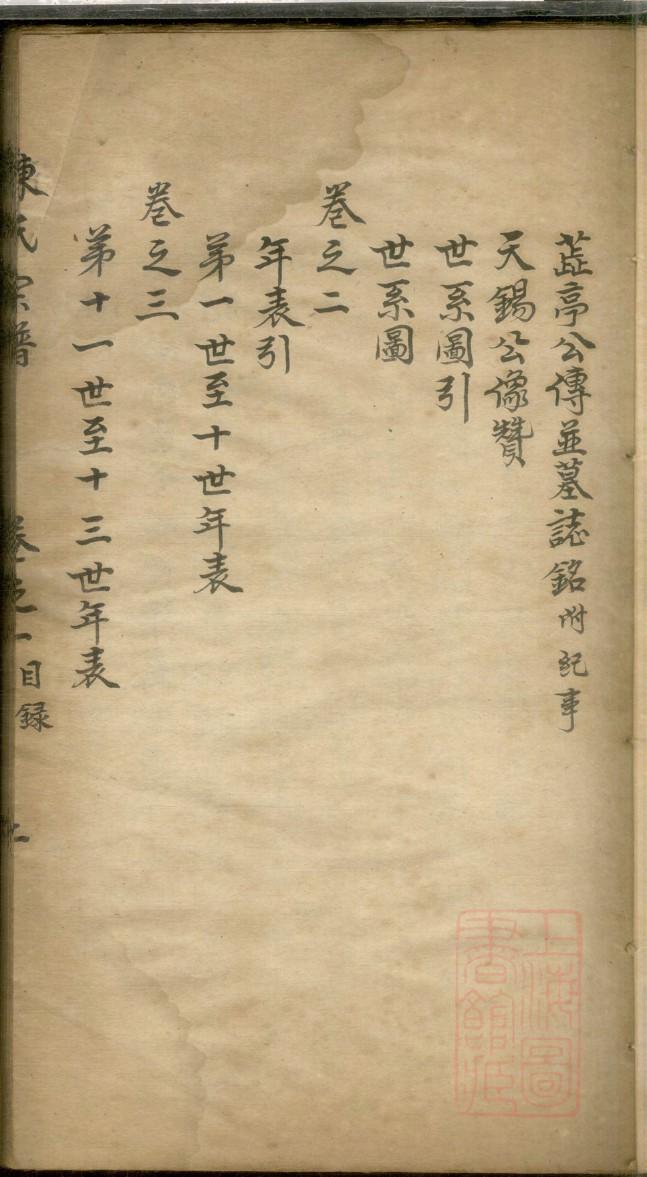 蕋亭公傳並墓誌銘附紀事
天錫公像贊
世系圖引
世系圖
卷之二
年表引
第一世至十世年表
卷之三
第十一世至十三世年表
陳氏宗譜 卷之一目録 二
上海圖書館藏